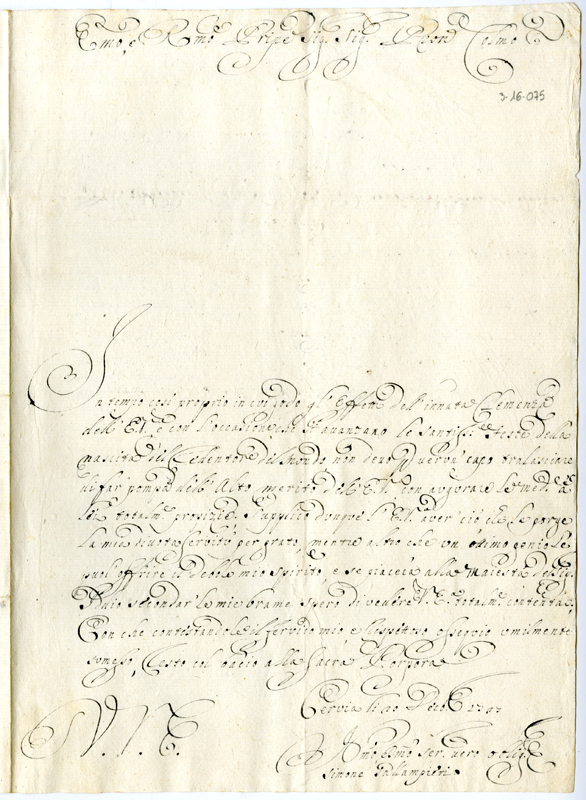 Emo e Rmo Prpe Sig. Sig. Pron Colmo
3-16-075
In tempo così proprio in cui godo gl'Effetti dell'innata Clemenza
dell'E.V. con l'occasione che s'avanzano le Santissi. feste della
nascita del Redentore del Mondo non devo per verun capo tralasciare
di far pensa dell'Alto merito dell'E.V. con augurare le med.e a
lei totalm. prospere. Supplico donque l'E.V. aver ciò che le porge
la mia divota servitù per grato, mentre altro che un ottimo genio le
puol offrire il debole mio spirito, e se piacerà alla Maestà del Sig.
Iddio secondar le mie brame spero di vedere V.E. totalm. contenta,
Con che contestandole il servire mio, e rispettoso ossequio umilmente
somesso, resto col bacio alla Sacra Porpora
Cervia li 20 Dece
V. E.
Umo Devmo ser. vero obblig.
Simone